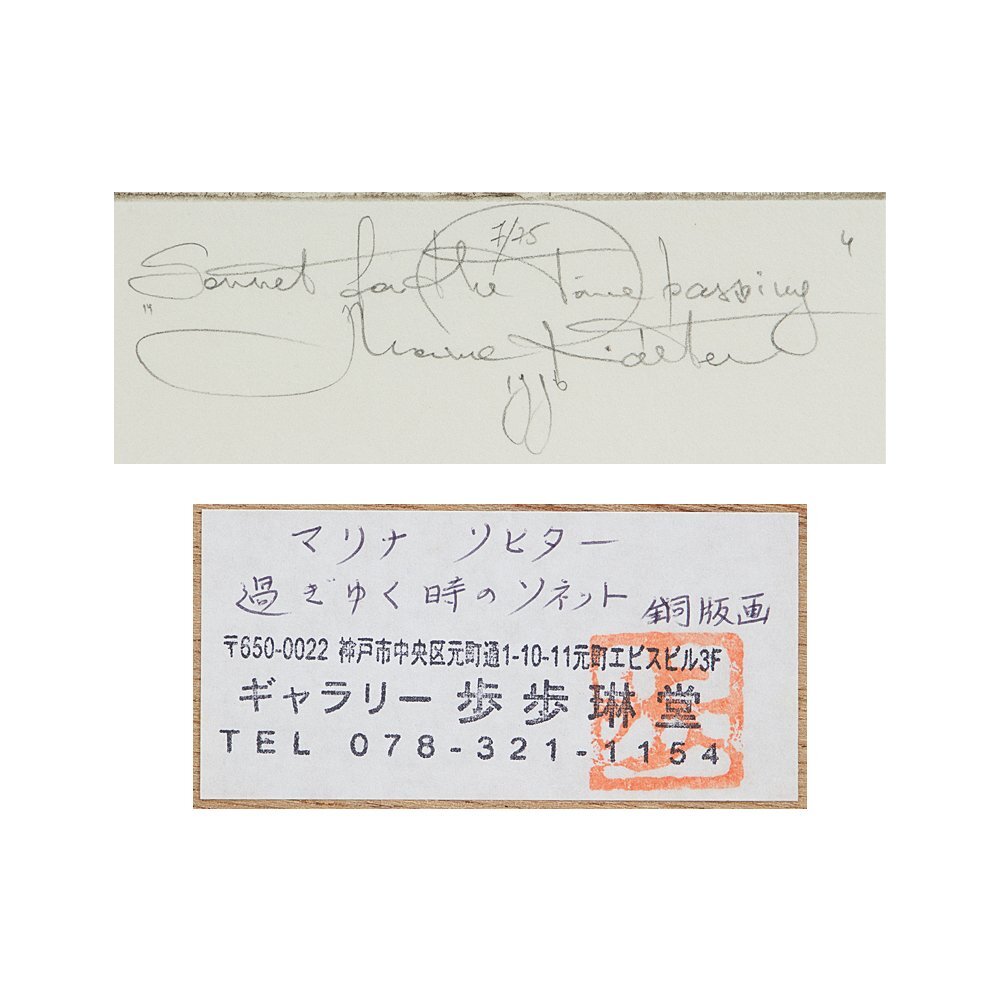 7/75
"Sonnet for the Time passing"
Marina Richter
1996
マリナ リヒター
過ぎゆく時のソネット 銅版画
〒650-0022 神戸市中央区元町通1-10-11元町エビスビル3F
ギャラリー 歩歩琳堂
TEL 078-321-1154